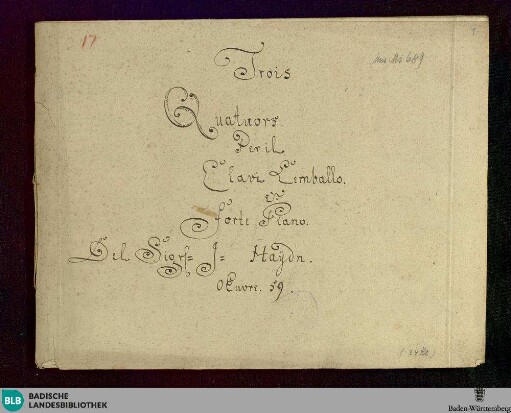 17
Mus. Hs. 689
Trois
Quatuors
Per il
Clavi Cembalo.
Forte Piano.
Del Sigre J= Haydn.
OEuvre. 59.
BLB BADISCHE
LANDESBIBLIOTHEK
Baden-Württemberg